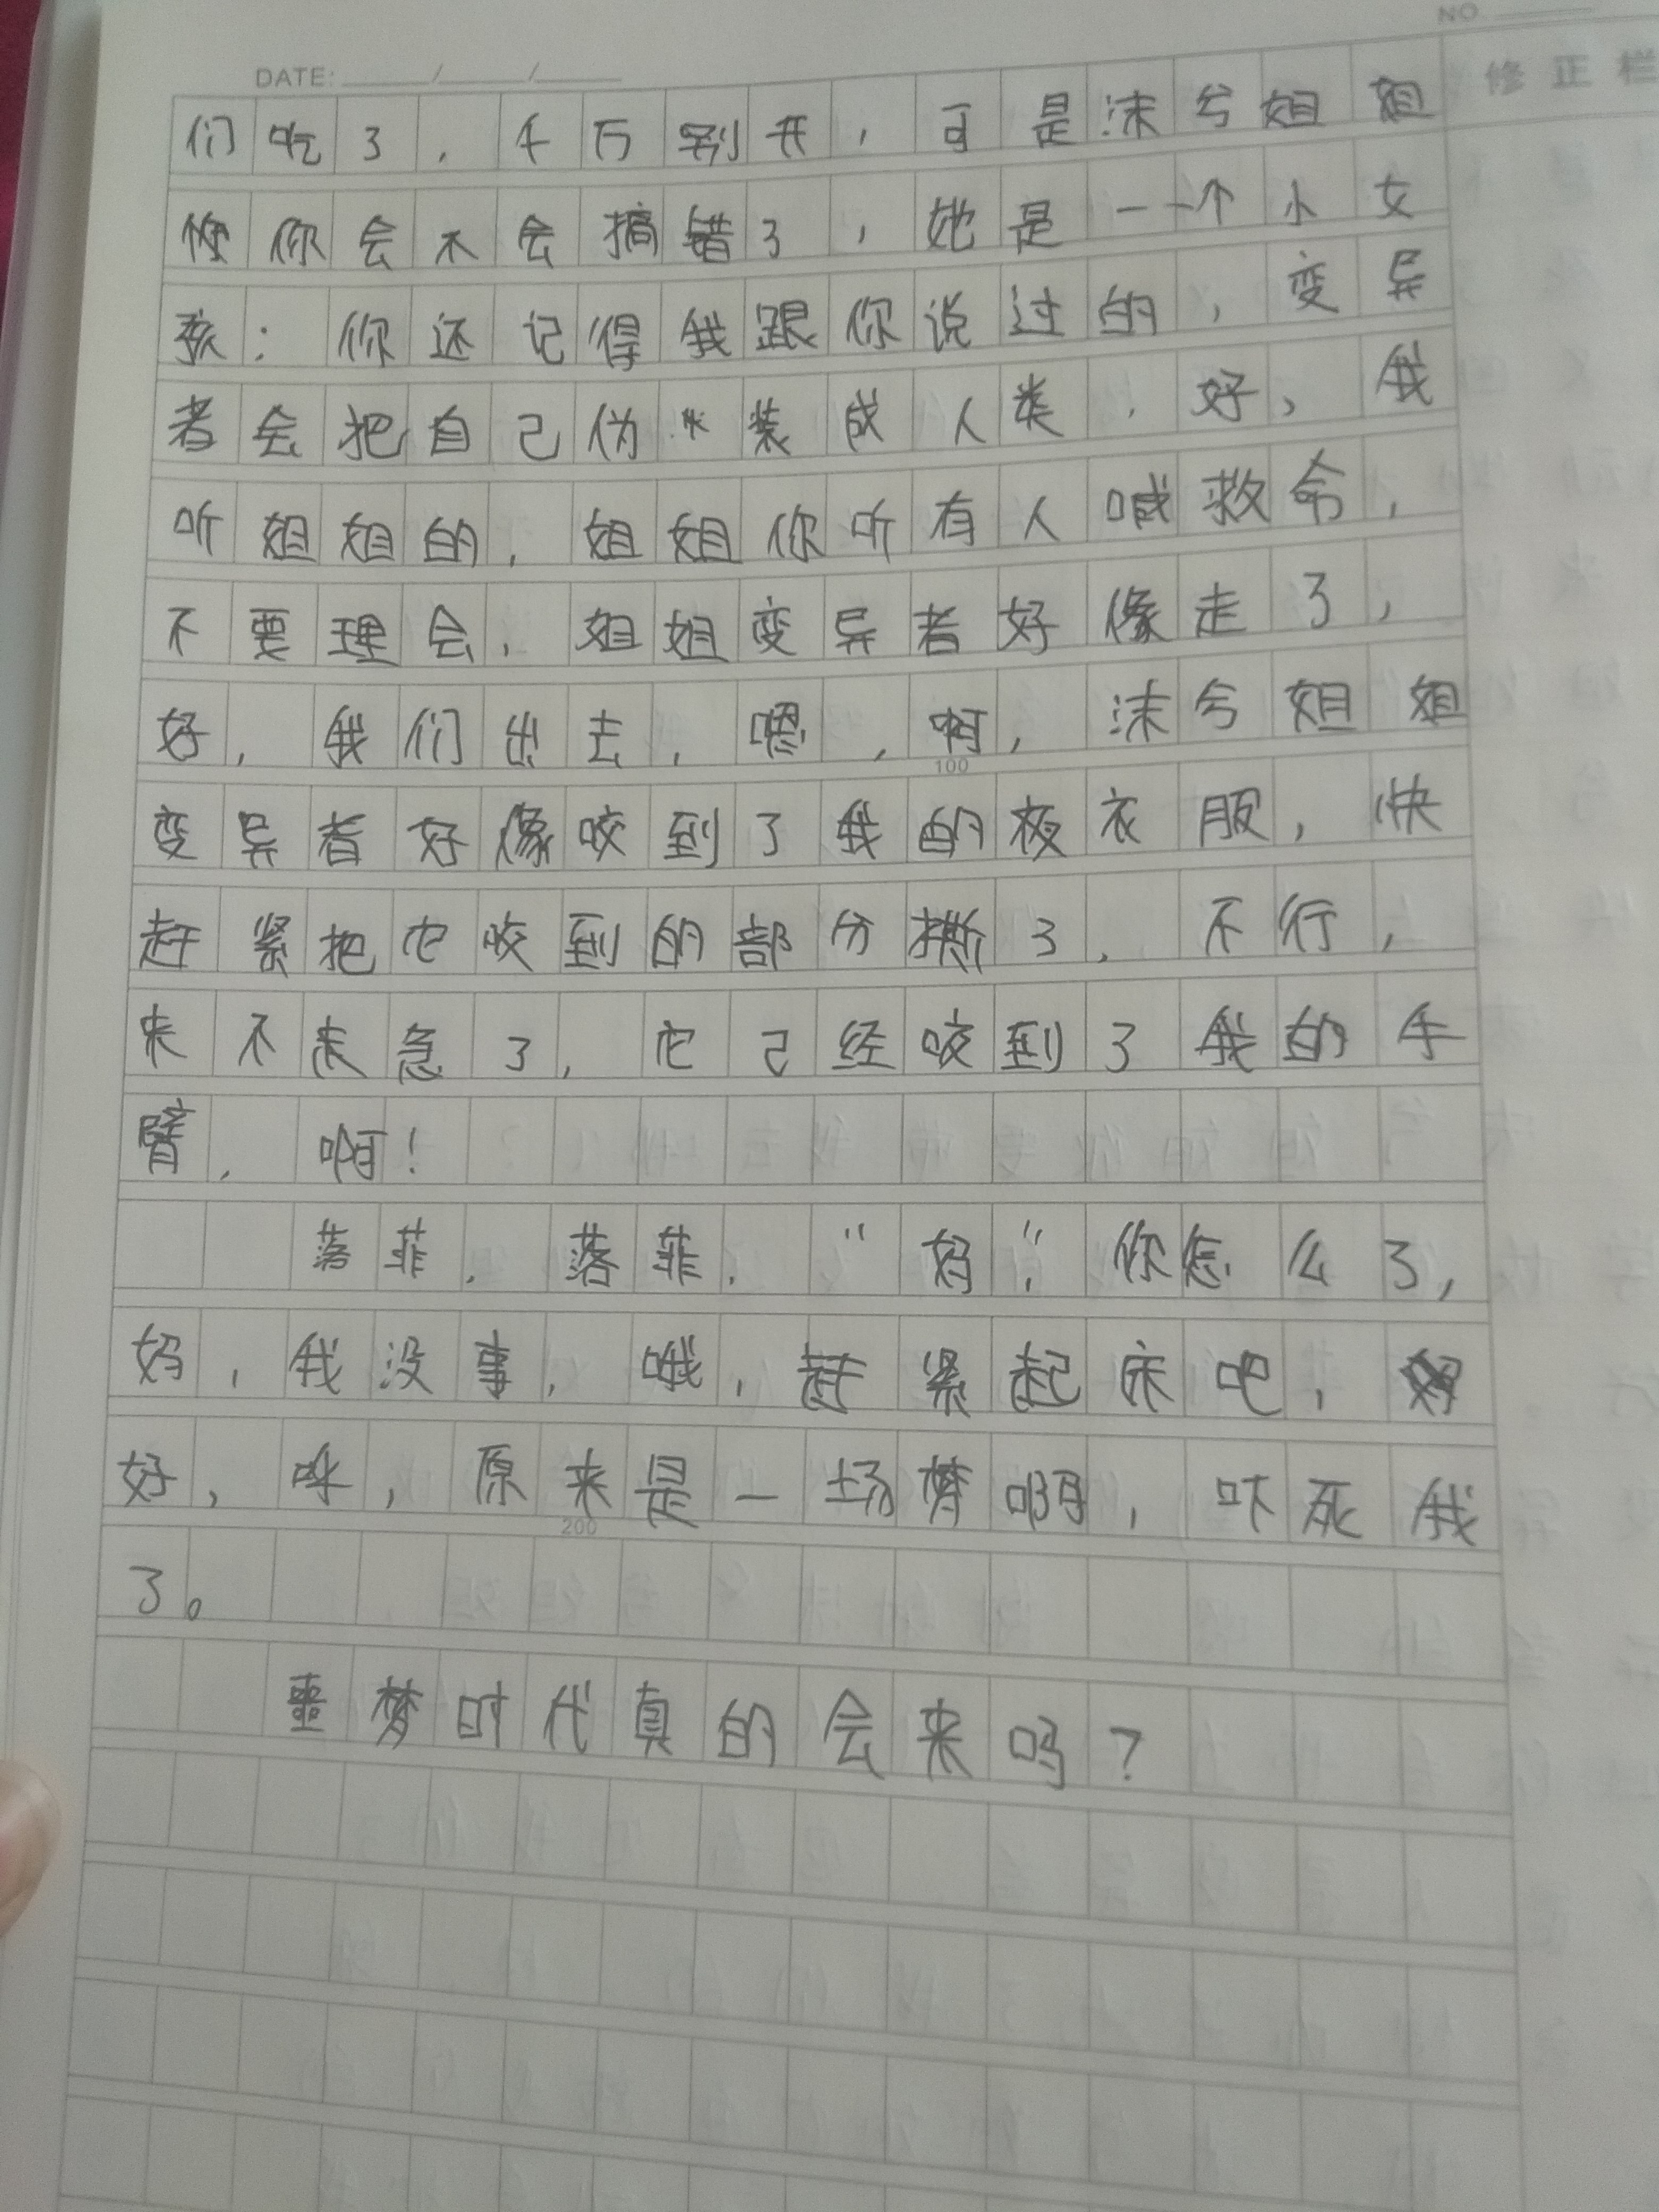 NO
DATE: / /
修正栏
们吃了，千万别开，可是沫兮姐姐
你会不会搞错了，她是一个小女
孩：你还记得我跟你说过的，变异
者会把自己伪装成人类，好，我
听姐姐的，姐姐你听有人喊救命，
不要理会，姐姐变异者好像走了，
好，我们出去，嗯，啊，沫兮姐姐
100
变异者好像咬到了我的衣服，快
赶紧把它咬到的部分撕了，不行，
来不急了，它己经咬到了我的手
臂，啊！
落菲，落菲，“妈”，你怎么了，
妈，我没事，哦，赶紧起床吧，
好，呼，原来是一场梦啊，吓死我
200
了。
噩梦时代真的会来吗？